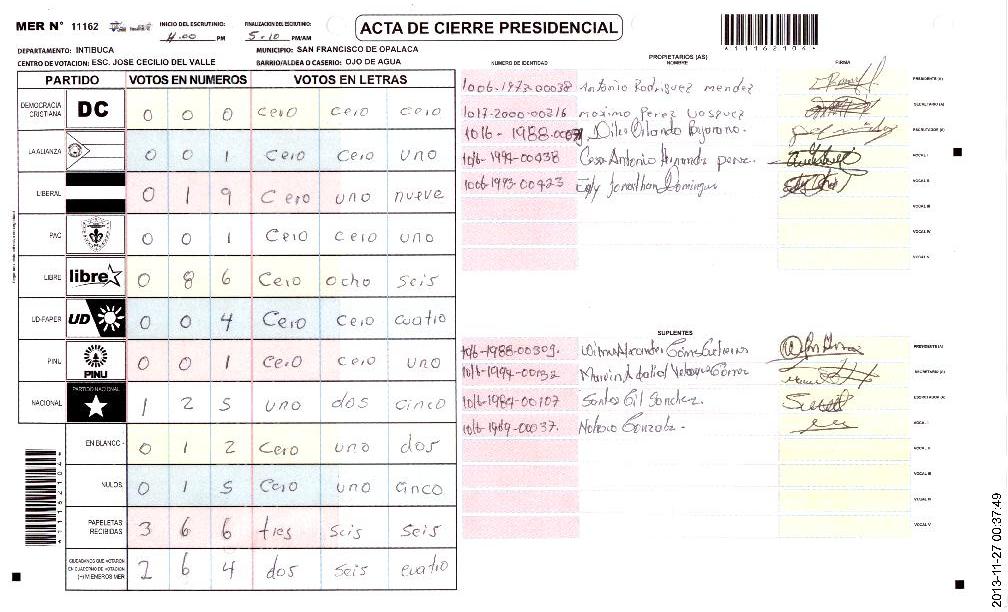 MER N° 11162 INICIO DEL ESCRUTINIO: 4.00 PM FINALIZACION DEL ESCRUTINIO: 5-10 PM/AM ACTA DE CIERRE PRESIDENCIAL
A11162104
DEPARTAMENTO: INTIBUCA MUNICIPIO: SAN FRANCISCO DE OPALACA
CENTRO DE VOTACION: ESC. JOSE CECILIO DEL VALLE BARRIO/ALDEA O CASERIO: OJO DE AGUA
PARTIDO VOTOS EN NUMEROS VOTOS EN LETRAS
DEMOCRACIA CRISTIANA DC 0 0 0 Cero cero cero
LA ALIANZA 0 0 1 Cero Cero uno
LIBERAL 0 1 9 Cero uno nueve
PAC 0 0 1 Cero cero uno
LIBRE libre 0 8 6 Cero ocho seis
UD-FAPER UD 0 0 4 Cero Cero cuatro
PINU PINU 0 0 1 Cero cero uno
NACIONAL PARTIDO NACIONAL 1 2 5 uno dos cinco
EN BLANCO 0 1 2 Cero uno dos
NULOS 0 1 5 Cero uno cinco
PAPELETAS RECIBIDAS 3 6 6 tres seis seis
CIUDADANOS QUE VOTARON EN CUADERNO DE VOTACION (+) MIEMBROS MER 2 6 4 dos seis cuatro
A11162104
PROPIETARIOS (AS)
NUMERO DE IDENTIDAD NOMBRE FIRMA
1006-1973-00038 Antonio Rodriguez mendez PRESIDENTE (A)
1017-2000-00216 maximo Perez Vasquez SECRETARIO (A)
1016-1988- Orlando ESCRUTADOR (A)
1016-1994-00438 Cesar Antonio perez. VOCAL I
1006-1993-00423 Jonathan Dominguez VOCAL II
VOCAL III
VOCAL IV
VOCAL V
SUPLENTES
1016-1988-00309. Alexander PRESIDENTE (A)
1016-1994-00132 Marvin Adalid Gomez SECRETARIO (A)
1016-1984-00107 Santos Gil Sanchez. ESCRUTADOR (A)
1016-1969-00037. VOCAL I
VOCAL II
VOCAL III
VOCAL IV
VOCAL V
2013-11-27 00:37:49